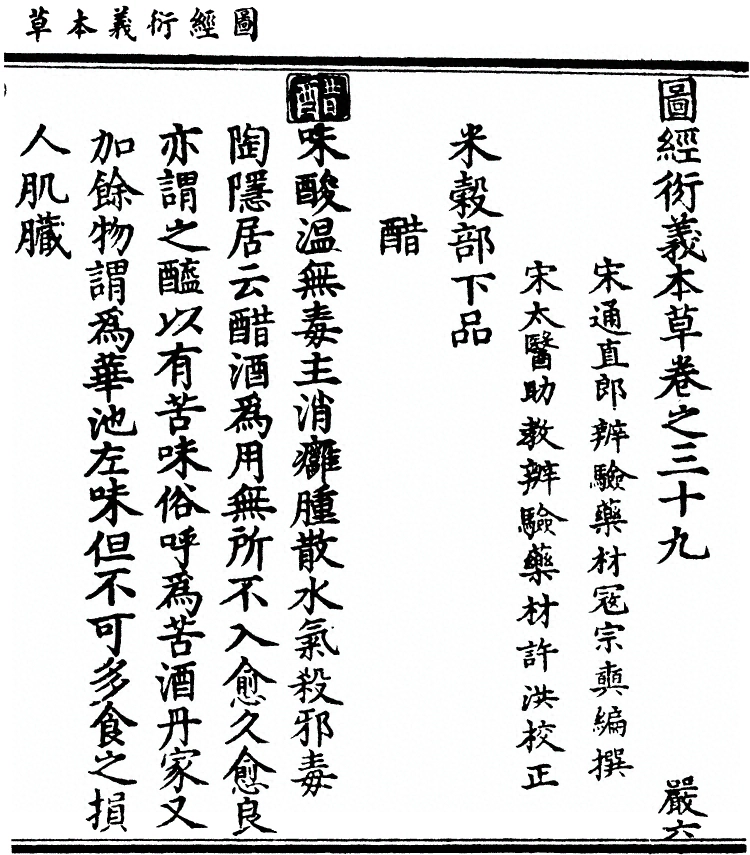 圖經衍義本草
圖經衍義本草卷之三十九 嚴六
宋通直郎辨驗藥材寇宗奭編撰
宋太醫助教辨驗藥材許洪校正
米穀部下品
醋
醋味酸温無毒主消癰腫散水氣殺邪毒
陶隱居云醋酒爲用無所不入愈久愈良
亦謂之醯以有苦味俗呼爲苦酒丹家又
加餘物謂爲華池左味但不可多食之損
人肌臟